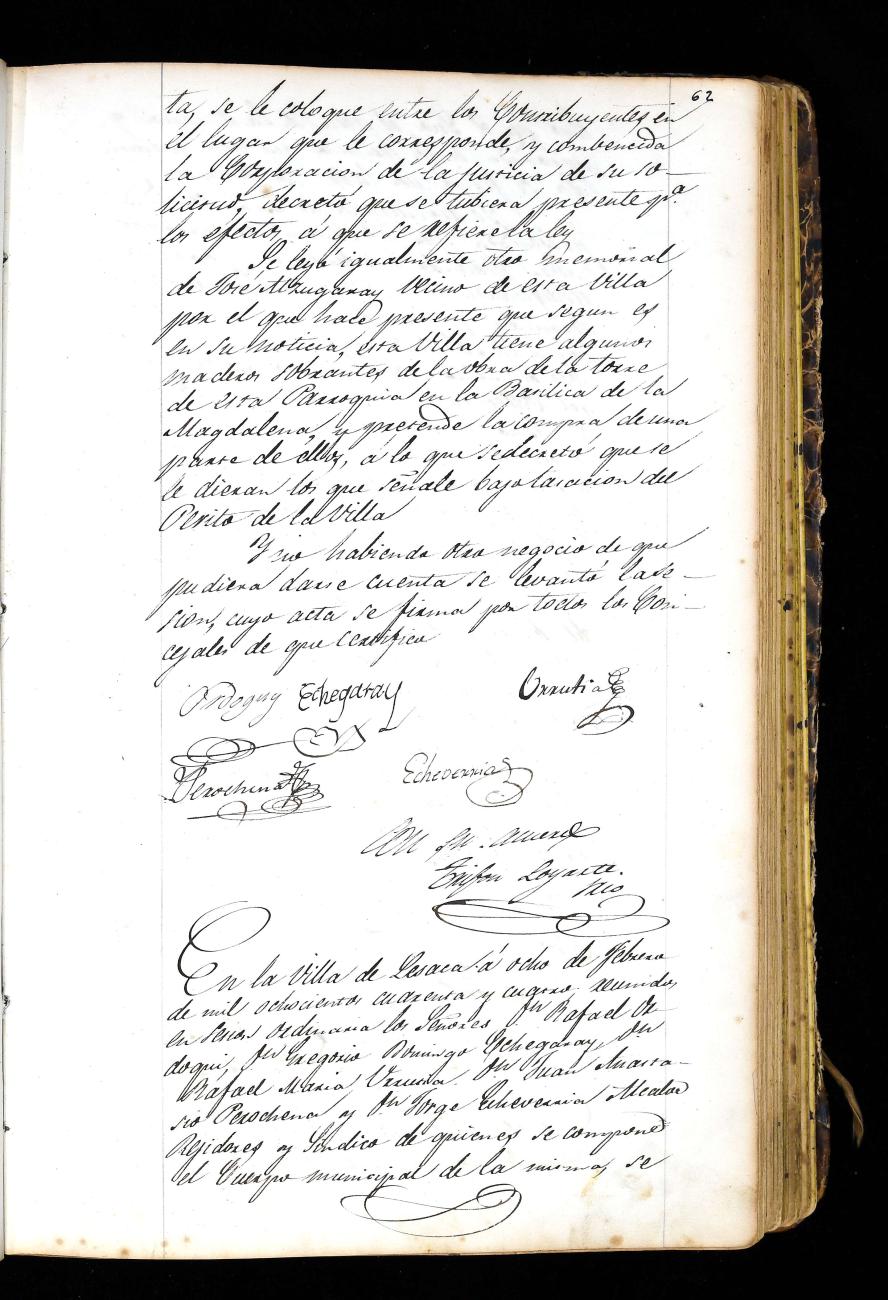 62
ta, se le coloque entre los Contribuyentes en
el lugar que le corresponde, y combencida
la Corporacion de la justicia de su so-
licitud, decretó que se tubiera presente pª.
los éfectos á que se refiere la ley
Se leyó igualmente otro memorial
de José Alzugaray Vecino de esta Villa
por el que hace presente que segun es
en su noticia, esta Villa tiene algunos
maderos sobrantes de la obra de la torre
de esta Parroquia en la Basilica de la
Magdalena, y pretende la compra de una
parte de éllos, á lo que se decretó que se
le dieran los que señale bajo tasacion del
Perito de la Villa
Y no habiendo otro negocio de que
pudiera darse cuenta se levantó la se-
sion, cuyo acta se firma por todos los Con-
cejales de que certifico
Ordoqui Echegaray Urrutia
Perochena Echeverria
Con su acuerdo
Trifon Loyarte.
Srio
En la Villa de Lesaca á ocho de Febrero
de mil ochocientos cuarenta y cuatro: reunidos
en Sesion ordinaria los Señores Dn Rafael Or
doqui, Dn Gregorio Domingo Echegaray, Dn
Rafael Maria Urrutia. Dn Juan Anasta-
sio Perochena y Dn Jorge Echeverria Alcalde
Rejidores y Sindico de quienes se compone
el Cuerpo municipal de la misma, se